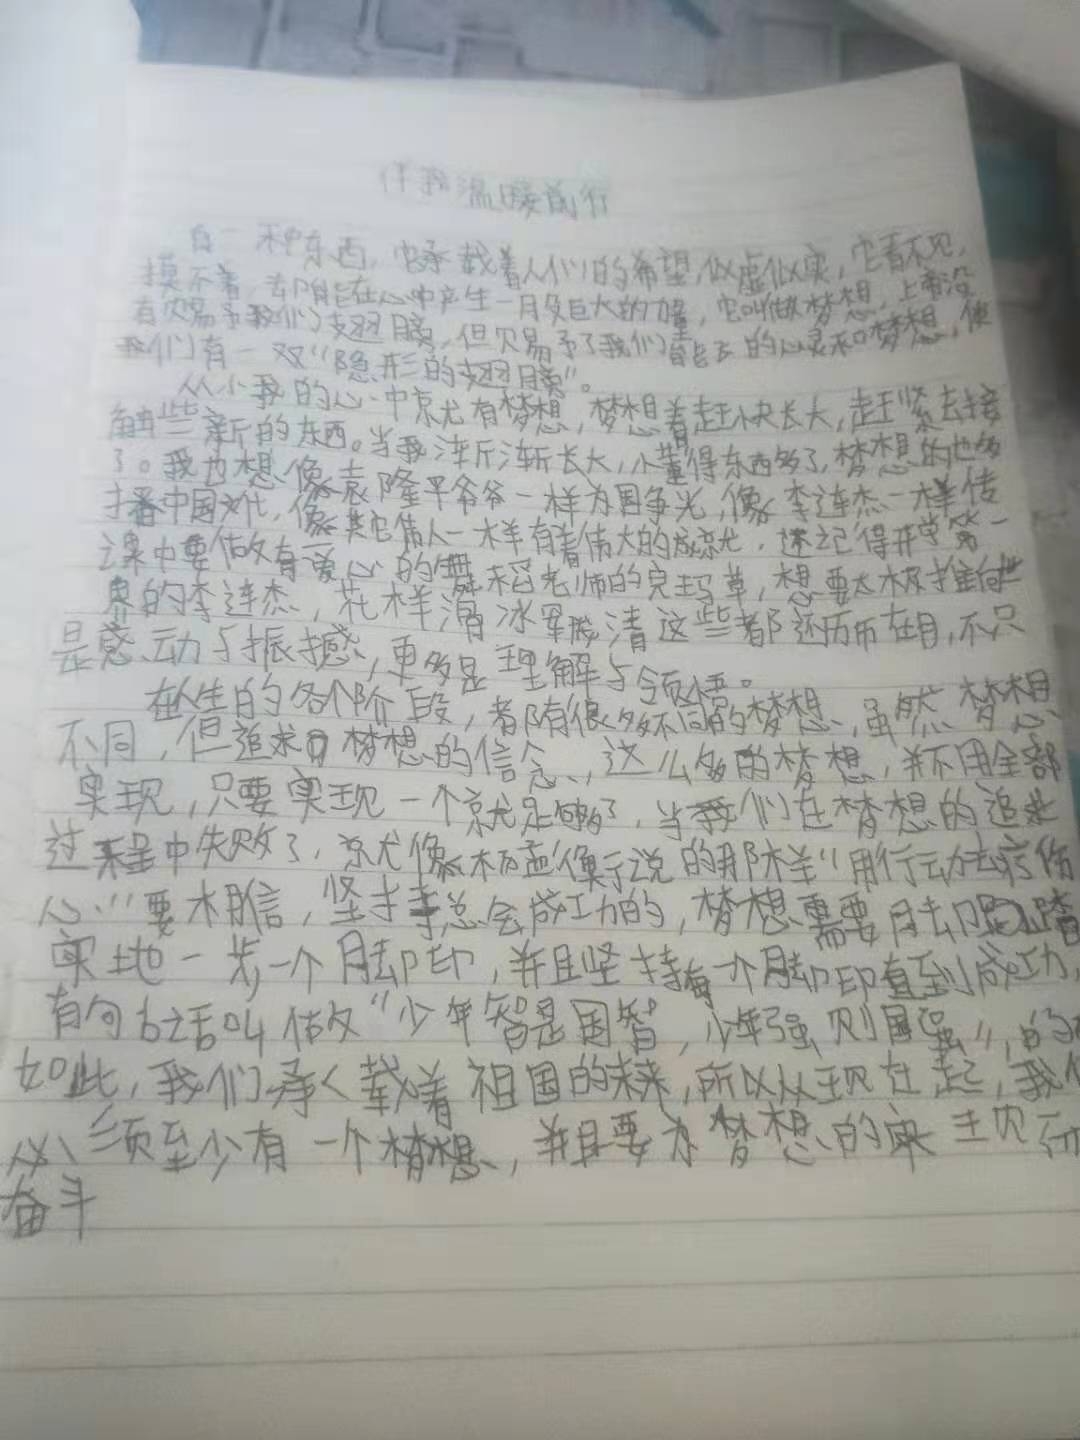 伴我温暖前行
有一种东西,它承载着人们的希望,似虚似实,它看不见,
摸不着,却能在心中产生一股巨大的力量,它叫做梦想,上帝没
有赐予我们翅膀,但赐予了我们会飞的心灵和梦想,使
我们有一双“隐形的翅膀”。
从小我的心中就有梦想,梦想着赶快长大,赶紧去接
触些新的东西。当我渐渐长大,懂得东西多了,梦想的也多
了。我也想像袁隆平爷爷一样为国争光,像李连杰一样传
播中国文化,像其它伟人一样有着伟大的成就,还记得开学第一
课中要做有爱心的 稻老师的 草,想要太极推向世
界的李连杰,花样滑冰 清这些都还历历在目,不只
是感动与振撼,更多是理解与领悟。
在人生的各个阶段,都有很多不同的梦想,虽然梦想
不同,但追求 梦想的信念,这么多的梦想,并不用全部
实现,只要实现一个就足够了,当我们在梦想的追求
过程中失败了,就像杨孟衡所说的那样“用行动去疗伤
心”要相信,坚持总会成功的,梦想需要脚踏
实地一步一个脚印,并且坚持每一个脚印直到成功,
有句话叫做“少年智是国智,少年强则国强”,的确
如此,我们承载着祖国的未来,所以从现在起,我们
必须至少有一个梦想,并且要为梦想的实现而
奋斗